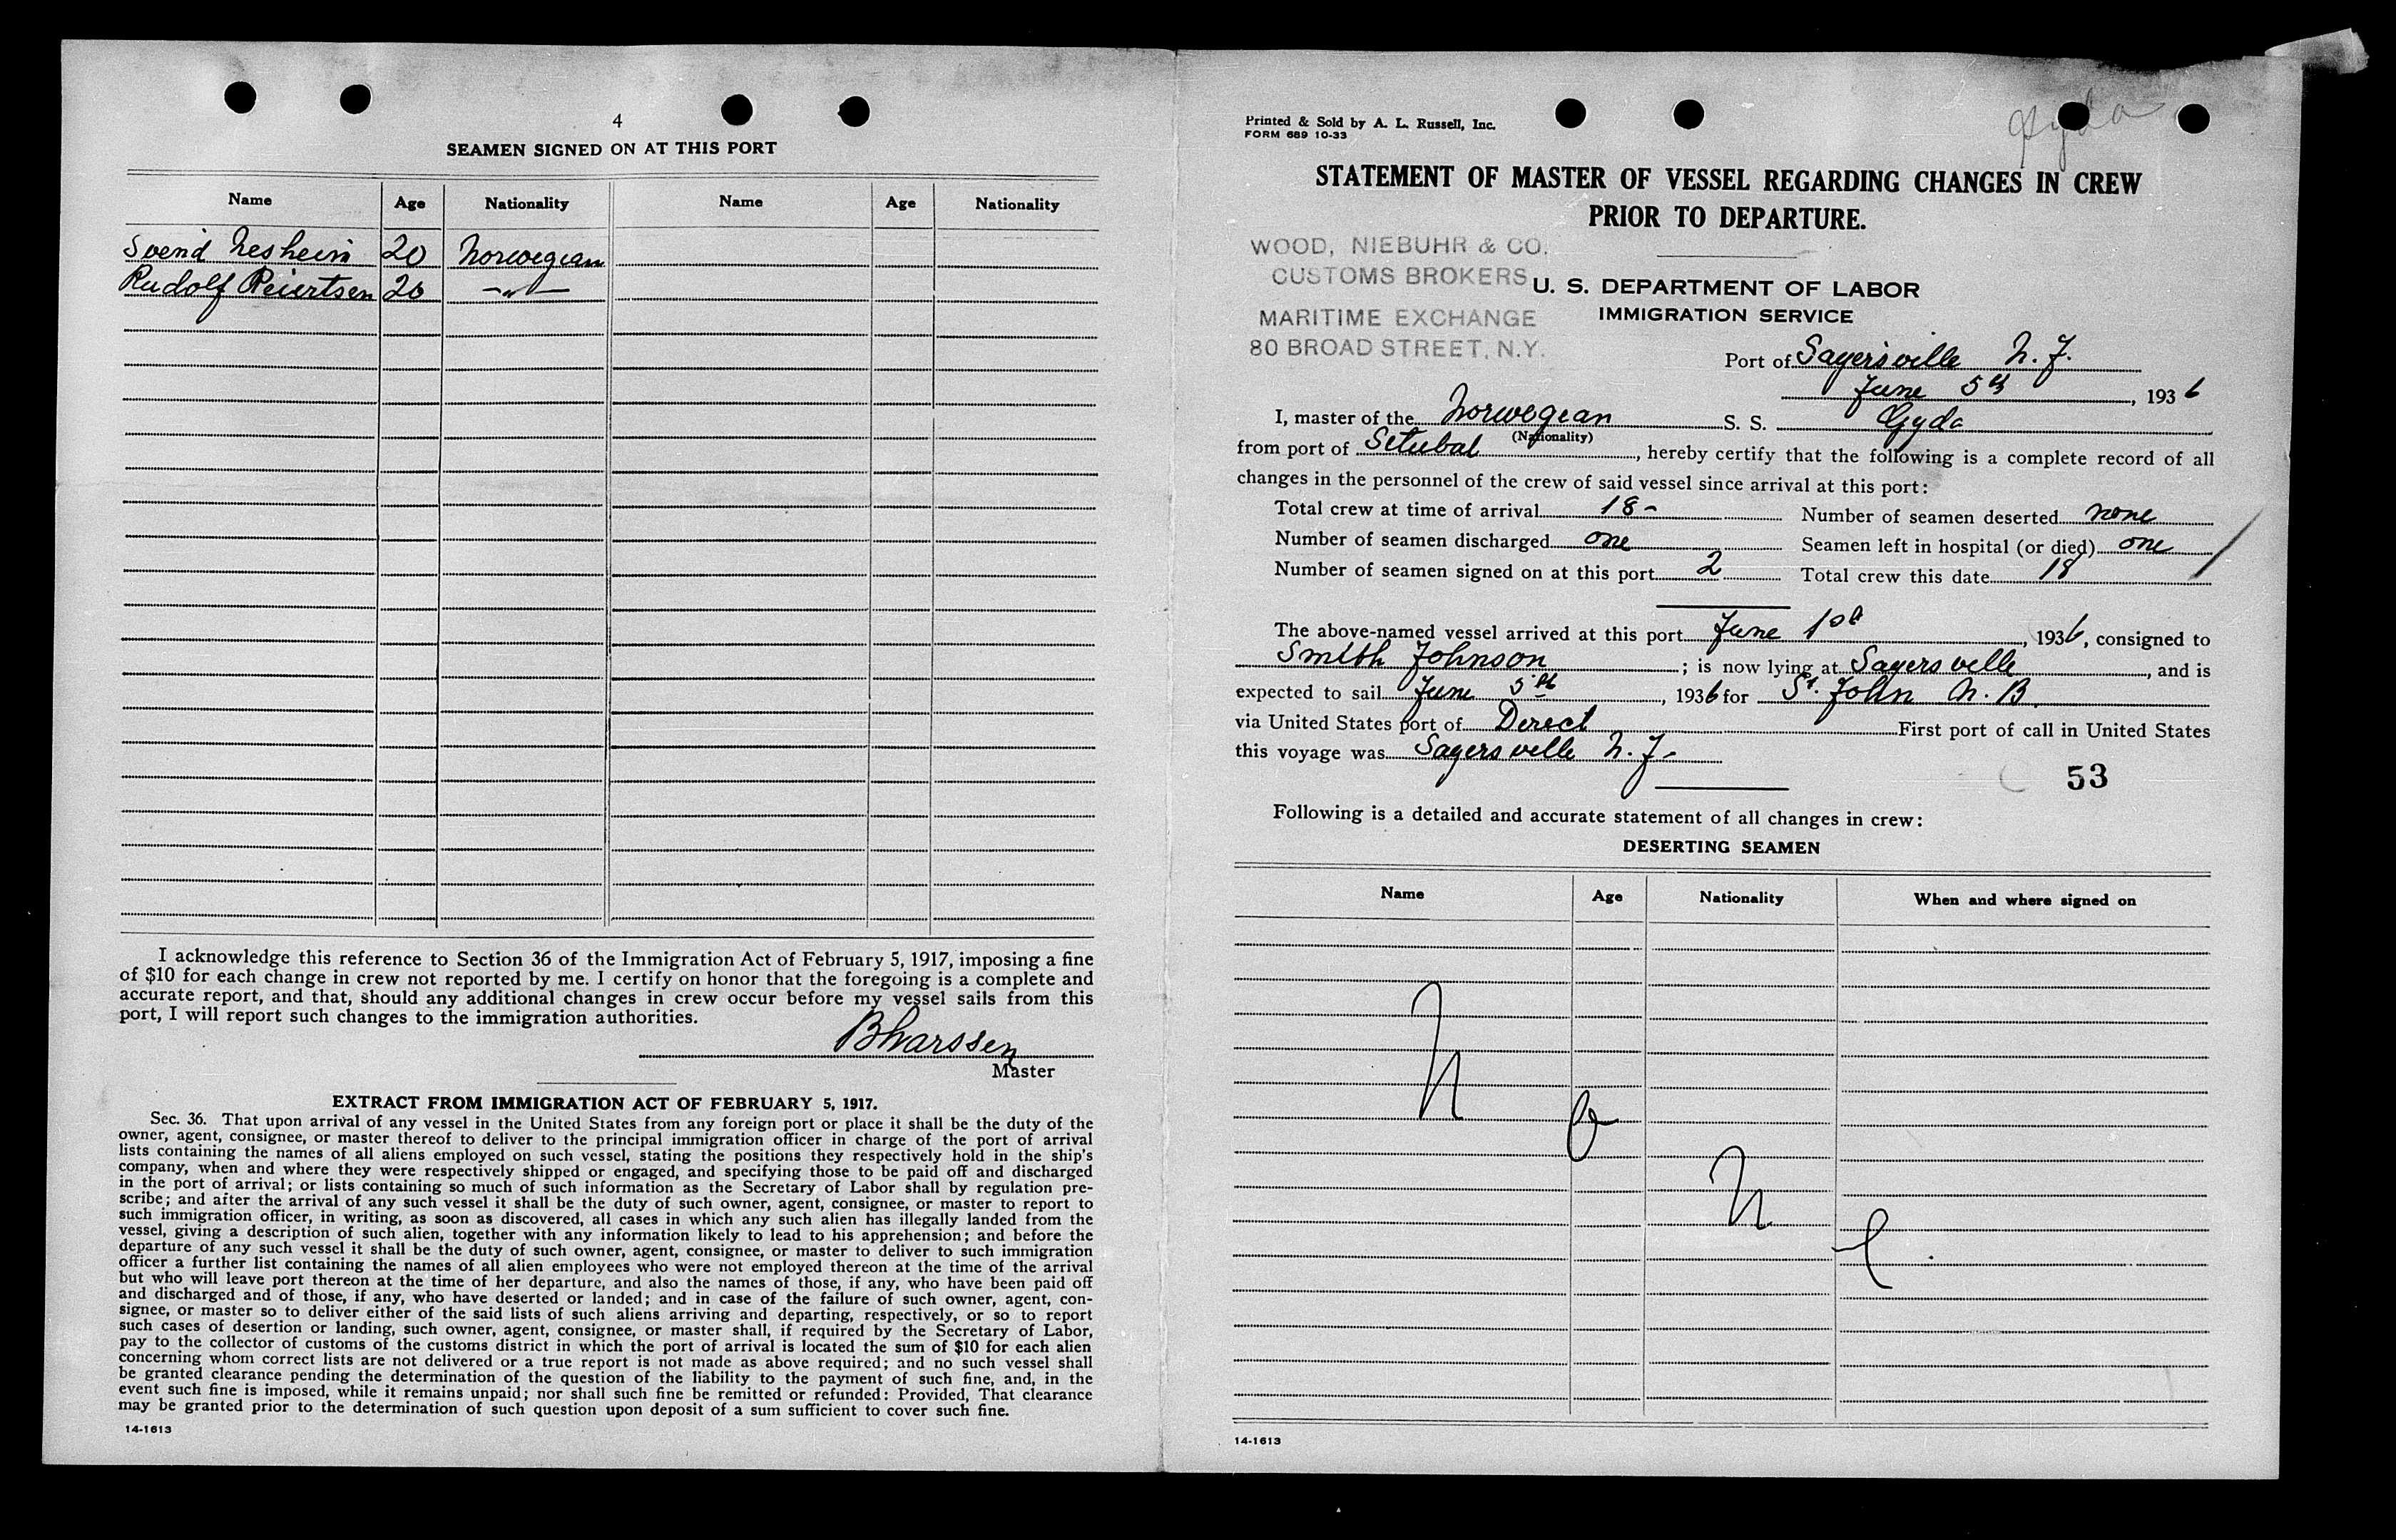 4
SEAMEN SIGNED ON AT THIS PORT
Name Age Nationality Name Age Nationality
Svend Nesheim 20 Norwegian
Rudolf Reiertsen 20 -"-
I acknowledge this reference to Section 36 of the Immigration Act of February 5, 1917, imposing a fine
of $10 for each change in crew not reported by me. I certify on honor that the foregoing is a complete and
accurate report, and that, should any additional changes in crew occur before my vessel sails from this
port, I will report such changes to the immigration authorities.
Master
EXTRACT FROM IMMIGRATION ACT OF FEBRUARY 5, 1917.
Sec. 36. That upon arrival of any vessel in the United States from any foreign port or place it shall be the duty of the
owner, agent, consignee, or master thereof to deliver to the principal immigration officer in charge of the port of arrival
lists containing the names of all aliens employed on such vessel, stating the positions they respectively hold in the ship's
company, when and where they were respectively shipped or engaged, and specifying those to be paid off and discharged
in the port of arrival; or lists containing so much of such information as the Secretary of Labor shall by regulation pre-
scribe; and after the arrival of any such vessel it shall be the duty of such owner, agent, consignee, or master to report to
such immigration officer, in writing, as soon as discovered, all cases in which any such alien has illegally landed from the
vessel, giving a description of such alien, together with any information likely to lead to his apprehension; and before the
departure of any such vessel it shall be the duty of such owner, agent, consignee, or master to deliver to such immigration
officer a further list containing the names of all alien employees who were not employed thereon at the time of the arrival
but who will leave port thereon at the time of her departure, and also the names of those, if any, who have been paid off
and discharged and of those, if any, who have deserted or landed; and in case of the failure of such owner, agent, con-
signee, or master so to deliver either of the said lists of such aliens arriving and departing, respectively, or so to report
such cases of desertion or landing, such owner, agent, consignee, or master shall, if required by the Secretary of Labor,
pay to the collector of customs of the customs district in which the port of arrival is located the sum of $10 for each alien
concerning whom correct lists are not delivered or a true report is not made as above required; and no such vessel shall
be granted clearance pending the determination of the question of the liability to the payment of such fine, and, in the
event such fine is imposed, while it remains unpaid; nor shall such fine be remitted or refunded: Provided, That clearance
may be granted prior to the determination of such question upon deposit of a sum sufficient to cover such fine.
14-1613
Printed & Sold by A. L. Russell, Inc.
FORM 689 10-33
Gyda
STATEMENT OF MASTER OF VESSEL REGARDING CHANGES IN CREW
PRIOR TO DEPARTURE.
WOOD, NIEBUHR & CO.
CUSTOMS BROKERS
MARITIME EXCHANGE
80 BROAD STREET, N.Y.
U. S. DEPARTMENT OF LABOR
IMMIGRATION SERVICE
Port of Sayersville N. J.
June 5th, 1936
I, master of the Norwegian S. S. Gyda
(Nationality)
from port of Setubal, hereby certify that the following is a complete record of all
changes in the personnel of the crew of said vessel since arrival at this port:
Total crew at time of arrival 18- Number of seamen deserted none
Number of seamen discharged one Seamen left in hospital (or died) one
Number of seamen signed on at this port 2 Total crew this date 18
The above-named vessel arrived at this port June 1st, 1936, consigned to
Smith Johnson; is now lying at Sayersville, and is
expected to sail June 5th, 1936 for St. John N. B.
via United States port of Direct First port of call in United States
this voyage was Sayersville N. J-
53
Following is a detailed and accurate statement of all changes in crew:
DESERTING SEAMEN
Name Age Nationality When and where signed on
None
14-1613